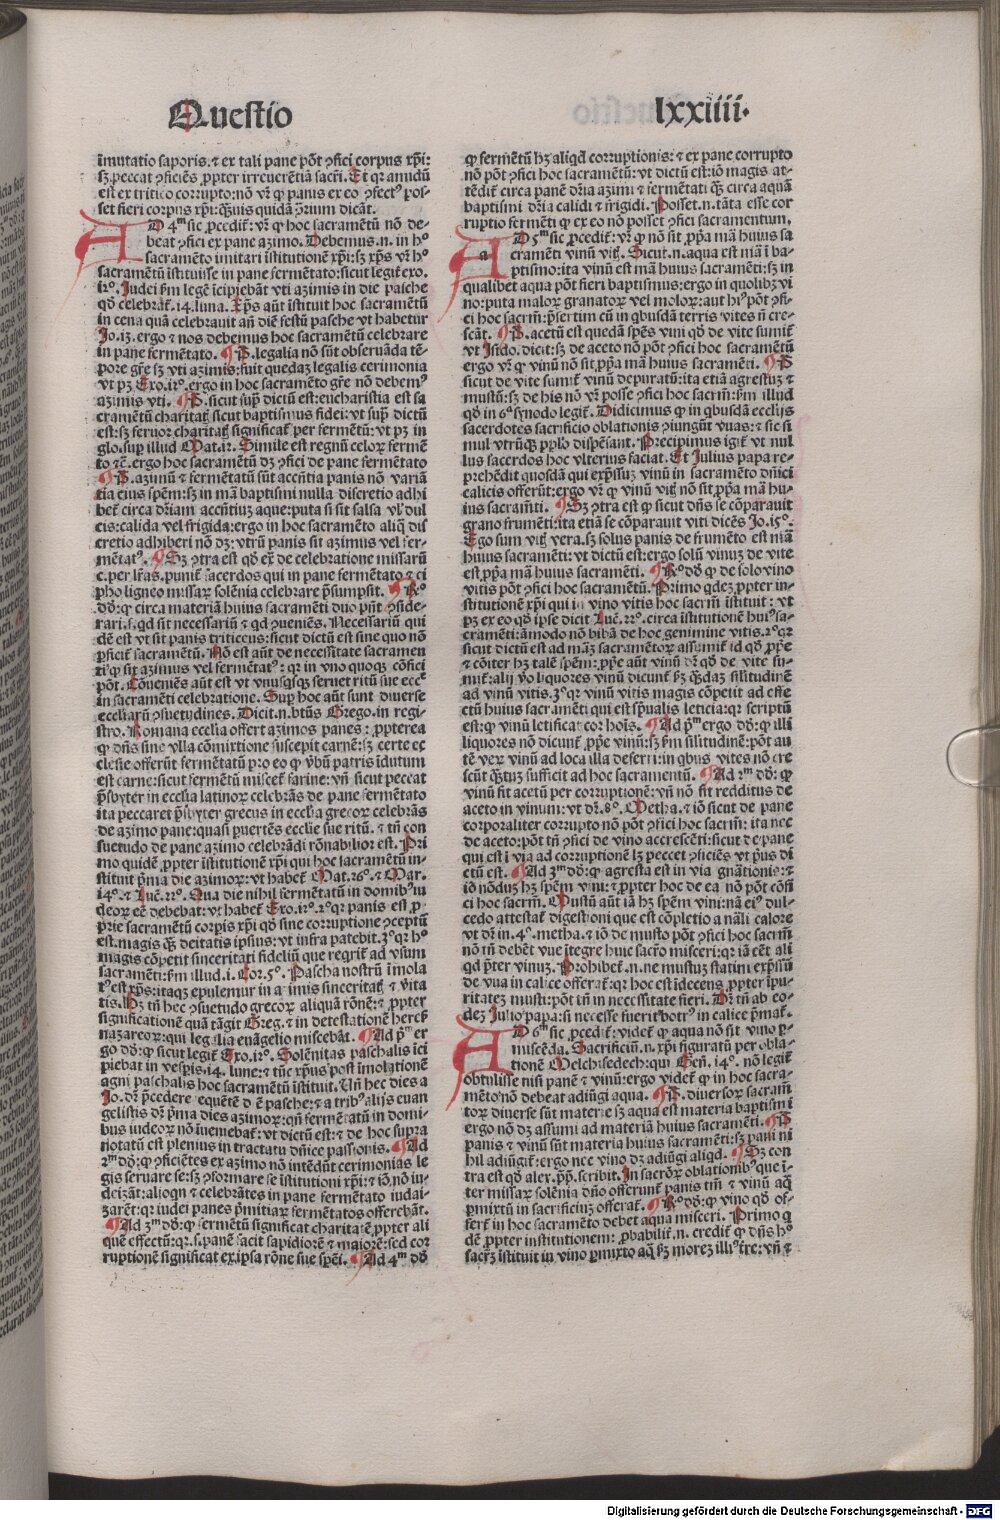 Questio
lxxiiii.
īmutatio saporis. ⁊ ex tali pane põt ꝯfici corpus xp̄i:
sꝫ peccat ꝯficiēs ꝓpter irreuerētiā sacr̄i. Et qꝛ amidū
est ex tritico corrupto: nō vr̄ ꝙ panis ex eo ꝯfectꝰ pos-
set fieri corpus xp̄i: qꝫuis quidā ꝯtrium dicāt.
AD 4ᵐ sic ꝓcedit᷑: vr̄ ꝙ hoc sacramētū nō de-
beat ꝯfici ex pane azimo. Debemus .n. in hᵒ
sacramēto imitari institutionē xp̄i: sꝫ xp̄s vr̄ hᵒ
sacramētū istituisse in pane fermētato: sicut legit᷑ exo.
12ᵒ. Judei ẜm legē icipiebāt vti azimis in die pasche
qd̄ celebrat᷑ .14. luna. Xp̄s aūt istituit hoc sacramētū
in cena quā celebrauit añ diē festū pasche vt habetur
Jo. 13. ergo ⁊ nos debemus hoc sacramētū celebrare
in pane fermētato. ¶ P. legalia nō sūt obseruāda tē-
pore gr̄e sꝫ vti azimis: fuit quedaꝫ legalis cerimonia
vt pꝫ Exo. 12ᵒ. ergo in hoc sacramēto gr̄e nō debemꝰ
azimis vti. ¶ P. sicut supᵃ dictū est: eucharistia est sa
cramētū charitatꝭ sicut baptismus fidei: vt supᵃ dictū
est: sꝫ feruor charitatꝭ significat᷑ per fermētū: vt pꝫ in
glo. sup illud Mat. 12. Simile est regnū celoꝝ fermē
to ⁊c̄. ergo hoc sacramētū dꝫ ꝯfici de pane fermētato
¶ P. azimū ⁊ fermētatū sūt accñtia panis nō variā
tia eius spēm: sꝫ in mā baptismi nulla discretio adhi
bet᷑ circa dr̄iam accñtiuꝫ aque: puta si sit salsa vl̓ dul
cis: calida vel frigida: ergo in hoc sacramēto aliqᵃ dis
cretio adhiberi nō dꝫ: vtrū panis sit azimus vel fer-
mētatꝰ. ¶ Sꝫ ꝯtra est qd̄ exᵃ de celebratione missarū
c. per lr̄as. punit᷑ sacerdos qui in pane fermētato ⁊ ci
pho ligneo missaꝝ solēnia celebrare p̄sumpsit. ¶ Rᵒ
dō: ꝙ circa materiā huius sacramēti duo pn̄t ꝯside-
rari .s. qd sit necessariū ⁊ qd ꝯueniēs. Necessariū qui
dē est vt sit panis triticeus: sicut dictū est sine quo nō
ꝑficit᷑ sacramētū. Nō est aūt de necessitate sacramen
ti ꝙ sit azimus vel fermētatꝰ: qꝛ in vnoquoqꝫ cōfici
põt. Cōueniēs aūt est vt vnusqꝫ seruet ritū sue ecc̄e
in sacramēti celebratione. Supᵃ hoc aūt sunt diuerse
eccliarū ꝯsuetudines. Dicit .n. btūs Grego. in regi-
stro. Romana ecclia offert azimos panes: ꝓpterea
ꝙ dn̄s sine vlla cōmixtione suscepit carnē: sꝫ certe ec
clesie offerūt fermētatū pro eo ꝙ v̄bū patris idutum
est carne: sicut fermētū miscet᷑ farine: vñ sicut peccat
p̄sbyter in ecclia latinoꝝ celebrās de pane fermētato
ita peccaret p̄sbyter grecus in ecclia grecoꝝ celebrās
de azimo pane: quasi puertēs ecclie sue ritū. ⁊ tñ con
suetudo de pane azimo celebrādi rōnabilior est. Pri
mo quidē ꝓpter istitutionē xp̄i qui hoc sacramētū in-
stituit p̄ma die azimoꝝ: vt habet᷑ Mat. 26ᵒ. ⁊ Mar.
14ᵒ. ⁊ Luc̄. 22ᵒ. Qua die nihil fermētatū in domibꝰ iu
deoꝝ eē debebat: vt habet᷑ Exo. 12ᵒ. 2ᵒ qꝛ panis est ꝓ
prie sacramētū corpis xp̄i qd̄ sine corruptione ꝯceptū
est. magis qꝫ deitatis ipsius: vt infra patebit. 3ᵒ qꝛ hᵒ
magis cōpetit sinceritati fideliū que reqrit᷑ ad vsum
sacramēti: ẜm illud .i. Cor. 5ᵒ. Pascha nostrū imola
tꝰ est xp̄s: itaqꝫ epulemur in azimis sinceritatꝭ ⁊ v̄ita
tis. Hꝫ tñ hec ꝯsuetudo grecoꝝ aliquā rōnē: ⁊ ꝓpter
significationē quā tāgit Greg. ⁊ in detestationē heresꝭ
nazareoꝝ: qui legalia euāgelio miscebāt. ¶ Ad p̄ᵐ er
go dō: ꝙ sicut legit᷑ Exo. 12ᵒ. Solēnitas paschalis ici
piebat in vesp̄is .14. lune: ⁊ tūc xp̄us post imolationē
agni paschalis hoc sacramētū istituit. Vñ hec dies a
Jo. dr̄ p̄cedere sequētē diē pasche: ⁊ a tribꝰ alijs euan
gelistis dr̄ p̄ma dies azimoꝝ: qñ fermētatū in domi-
bus iudeoꝝ nō inueniebat᷑: vt dictū est: ⁊ de hoc supra
notatū est plenius in tractatu dn̄ice passionis. ¶ Ad
2ᵐ dō: ꝙ ꝯficiētes ex azimo nō intēdūt cerimonias le
gis seruare se: sꝫ ꝯformare se istitutioni xp̄i: ⁊ iō nō iu-
deizāt: alioqn ⁊ celebrātes in pane fermētato iudai-
zarēt: qꝛ iudei panes p̄mitiaꝝ fermētatos offerebāt.
¶ Ad 3ᵐ dō: ꝙ fermētū significat charitatē ꝓpter ali
quē effectū: qꝛ .s. panē facit sapidiorē ⁊ maiorē: sed cor
ruptionē significat ex ipsa rōne sue spēi. ¶ Ad 4ᵐ dō
ꝙ fermētū hꝫ aliqd corruptionis: ⁊ ex pane corrupto
nō põt ꝯfici hoc sacramētū: vt dictū est: iō magis at-
tēdit᷑ circa panē dr̄ia azimi ⁊ fermētati qꝫ circa aquā
baptismi dr̄ia calidi ⁊ frigidi. Posset .n. tāta esse cor
ruptio fermēti ꝙ ex eo nō posset ꝯfici sacramentum.
AD 5ᵐ sic ꝓcedit᷑: vr̄ ꝙ nō sit ꝓp̄a mā huius sa
cramēti vinū vitꝭ. Sicut .n. aqua est mā i ba-
ptismo: ita vinū est mā huius sacramēti: sꝫ in
qualibet aqua põt fieri baptismus: ergo in quolibꝫ vi
no: puta maloꝝ granatoꝝ vel moloꝝ: aut huiꝰ põt ꝯfi-
ci hoc sacrm̄: p̄sertim cū in qbusdā terris vites ñ cre-
scāt. ¶ P. acetū est quedā spēs vini qd̄ de vite sumit᷑
vt Isido. dicit: sꝫ de aceto nō põt ꝯfici hoc sacramētū
ergo vr̄ ꝙ vinū nō sit ꝓp̄a mā huius sacramēti. ¶ P
sicut de vite sumit᷑ vinū depuratū: ita etiā agrestuꝫ ⁊
mustū: sꝫ de his nō vr̄ posse ꝯfici hoc sacrm̄: ẜm illud
qd̄ in 6ᵃ synodo legit᷑. Didicimus ꝙ in qbusdā ecclijs
sacerdotes sacrificio oblationis ꝯiungūt vuas: ⁊ sic si
mul vtrūqꝫ pplo dispēsant. Precipimus igit᷑ vt nul
lus sacerdos hoc vlterius faciat. Et Julius papa re-
prehēdit quosdā qui expssuꝫ vinū in sacramēto dn̄ici
calicis offerūt: ergo vr̄ ꝙ vinū vitꝭ nō sit ꝓp̄a mā hu-
ius sacramēti. ¶ Sꝫ ꝯtra est ꝙ sicut dn̄s se cōparauit
grano frumēti: ita etiā se cōparauit viti dicēs Jo. 15ᵒ.
Ego sum vitꝭ vera. sꝫ solus panis de frumēto est mā
huius sacramēti: vt dictū est: ergo solū vinuꝫ de vite
est ꝓp̄a mā huius sacramēti. ¶ Rᵒ dō ꝙ de solo vino
vitis põt ꝯfici hoc sacramētū. Primo qdeꝫ ꝓpter in-
stitutionē xp̄i qui in vino vitis hoc sacrm̄ istituit: vt
pꝫ ex eo qd̄ ipse dicit Luc̄. 22ᵒ. circa istitutionē huiꝰ sa-
cramēti: āmodo nō bibā de hoc genimine vitis. 2ᵒ qꝛ
sicut dictū est ad māꝫ sacramētoꝝ assumit᷑ id qd̄ ꝓpe
⁊ cōiter hꝫ talē spēm: ꝓpe aūt vinū dr̄ qd̄ de vite su-
mit᷑: alij v̄o liquores vinū dicunt᷑ ẜm qꝫdaꝫ silitudinē
ad vinū vitis. 3ᵒ qꝛ vinū vitis magis cōpetit ad effe
ctū huius sacramēti qui est spualis leticia: qꝛ scriptū
est: ꝙ vinū letificat cor hoīs. ¶ Ad p̄ᵐ ergo dō: ꝙ illi
liquores nō dicunt᷑ ꝓpe vinū: sꝫ ẜm silitudinē: põt au
tē veꝝ vinū ad loca illa deferri: in qbus vites nō cre
scūt qꝫtuꝫ sufficit ad hoc sacramentū. ¶ Ad 2ᵐ dō: ꝙ
vinū fit acetū per corruptionē: vñ nō fit redditus de
aceto in vinum: vt dr̄. 8ᵒ. Metha. ⁊ iō sicut de pane
corporaliter corrupto nō põt ꝯfici hoc sacrm̄: ita nec
de aceto: põt tñ ꝯfici de vino accrescēti: sicut de pane
qui est i via ad corruptionē lꝫ peccet ꝯficiēs vt prius di
ctū est. ¶ Ad 3ᵐ dō: ꝙ agresta est in via gnātionis: ⁊
iō nōduꝫ hꝫ spēm vini: ⁊ ꝓpter hoc de ea nō põt cōfi
ci hoc sacrm̄. Mustū aūt iā hꝫ spēm vini: nā eiꝰ dul-
cedo attestat᷑ digestioni que est cōpletio a nāli calore
vt dr̄ in .4ᵒ. metha. ⁊ iō de musto põt ꝯfici hoc sacrm̄
nō tñ debēt vue itegre huic sacr̄o misceri: qꝛ iā eēt ali
qd p̄ter vinuꝫ. Prohibet᷑ .n. ne mustuꝫ statim expssū
de vua in calice offerat᷑: qꝛ hoc est idecens ꝓpter ipu-
ritateꝫ musti: põt tñ in necessitate fieri. Dr̄ tñ ab eo-
deꝫ Julio papa: si necesse fuerit botrꝰ in calice p̄mat᷑.
AD 6ᵐ sic ꝓcedit᷑: videt᷑ ꝙ aqua nō sit vino p-
miscēda. Sacrificiū .n. xp̄i figuratū per obla-
tionē Melchisedech: qui Gen̄. 14ᵒ. nō legit᷑
obtulisse nisi panē ⁊ vinū: ergo videt᷑ ꝙ in hoc sacra-
mēto nō debeat adiūgi aqua. ¶ P. diuersoꝝ sacram̄
toꝝ diuerse sūt materie sꝫ aqua est materia baptismi
ergo nō dꝫ assumi ad materiā huius sacramēti. ¶ P
panis ⁊ vinū sūt materia huius sacramēti: sꝫ pani ni
hil adiūgit᷑: ergo nec vino dꝫ adiūgi aliqd. ¶ Sꝫ con
tra est qd̄ alex. pp̄. scribit. In sacroꝝ oblationibꝰ que i-
ter missaꝝ solēnia dn̄o offerunt᷑ panis tm̄ ⁊ vinū aqᵃ
pmixtū in sacrificiuꝫ offerat᷑. ¶ Rᵒ dō: ꝙ vino qd̄ of-
fert᷑ in hoc sacramēto debet aqua misceri. Primo q
dē ꝓpter institutionem: ꝓbabilit᷑ .n. credit᷑ ꝙ dn̄s hᵒ
sacrm̄ istituit in vino pmixto aqᵃ ẜm moreꝫ illiꝰ tr̄e: vñ ⁊
Digitalisierung gefördert durch die Deutsche Forschungsgemeinschaft - DFG